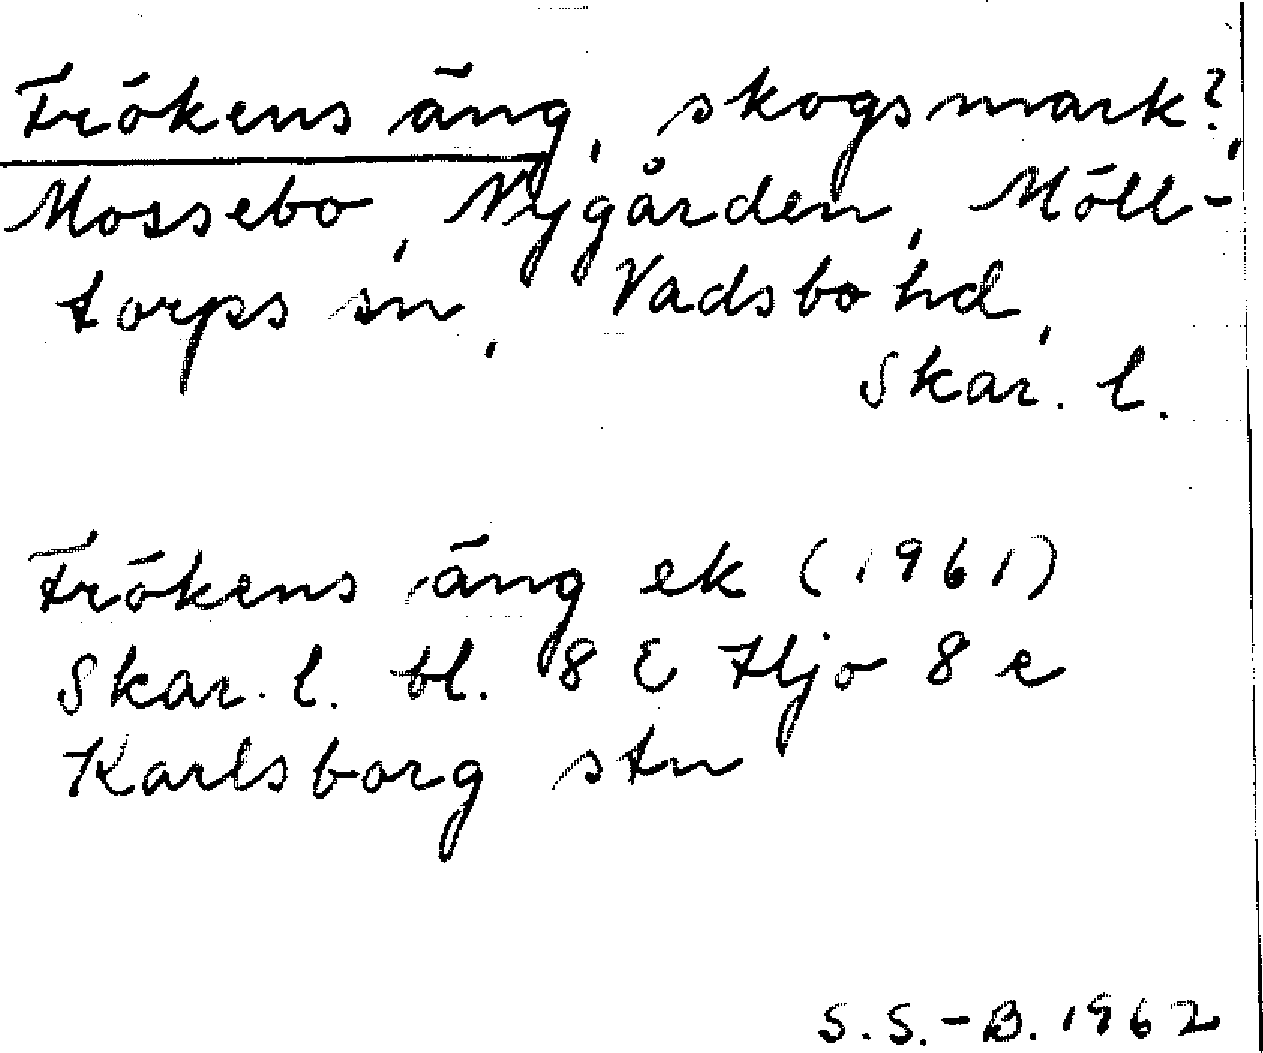 Frökens äng, skogsmark?,
Mossebo, Nygården, Möll-
torps sn, Vadsbo hd,
Skar. l.
Frökens äng ek (1961)
Skar. l. bl. 8 E Hjo 8 e
Karlsborg stn
S.S.-B. 1962